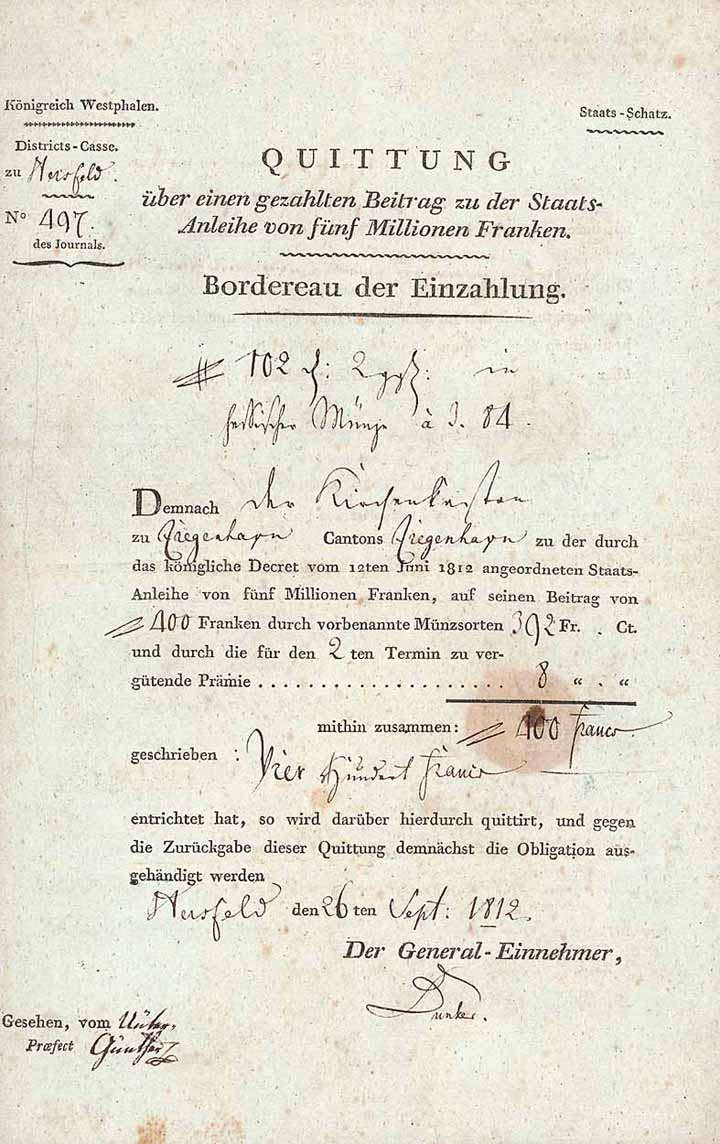 Königreich Westphalen.
Staats-Schatz.
Districts-Casse.
zu Hersfeld.
No 497.
des Journals.
QUITTUNG
über einen gezahlten Beitrag zu der Staats-
Anleihe von fünf Millionen Franken.
Bordereau der Einzahlung.
102 : 2 ggr: in
hessischer Münze à 3. 84.
Demnach der Kirchenkasten
zu Ziegenhayn Cantons Ziegenhayn zu der durch
das königliche Decret vom 12ten Juni 1812 angeordneten Staats-
Anleihe von fünf Millionen Franken, auf seinen Beitrag von
400 Franken durch vorbenannte Münzsorten 392 Fr. . Ct.
und durch die für den 2 ten Termin zu ver-
gütende Prämie . . . . . . . . . . . . . . . . . . . . 8 “ . “
mithin zusammen: 400 Francs.
geschrieben : Vier Hundert Francs
entrichtet hat, so wird darüber hierdurch quittirt, und gegen
die Zurückgabe dieser Quittung demnächst die Obligation aus-
gehändigt werden
Hersfeld den 26 ten Sept: 1812.
Der General-Einnehmer,
Dunker.
Gesehen, vom Unter-
Præfect Günther